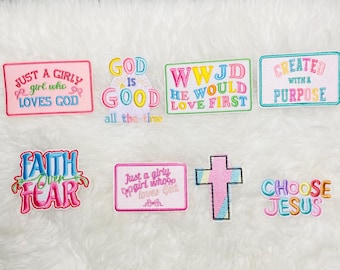 JUST A GIRLY
girl who
LOVES GOD
GOD
IS
GOOD
all the time
WWJD
HE WOULD
LOVE FIRST
CREATED
WITH A
PURPOSE
FAITH
Over
FEAR
Just a girly
girl who
loves God
CHOOSE
JESUS